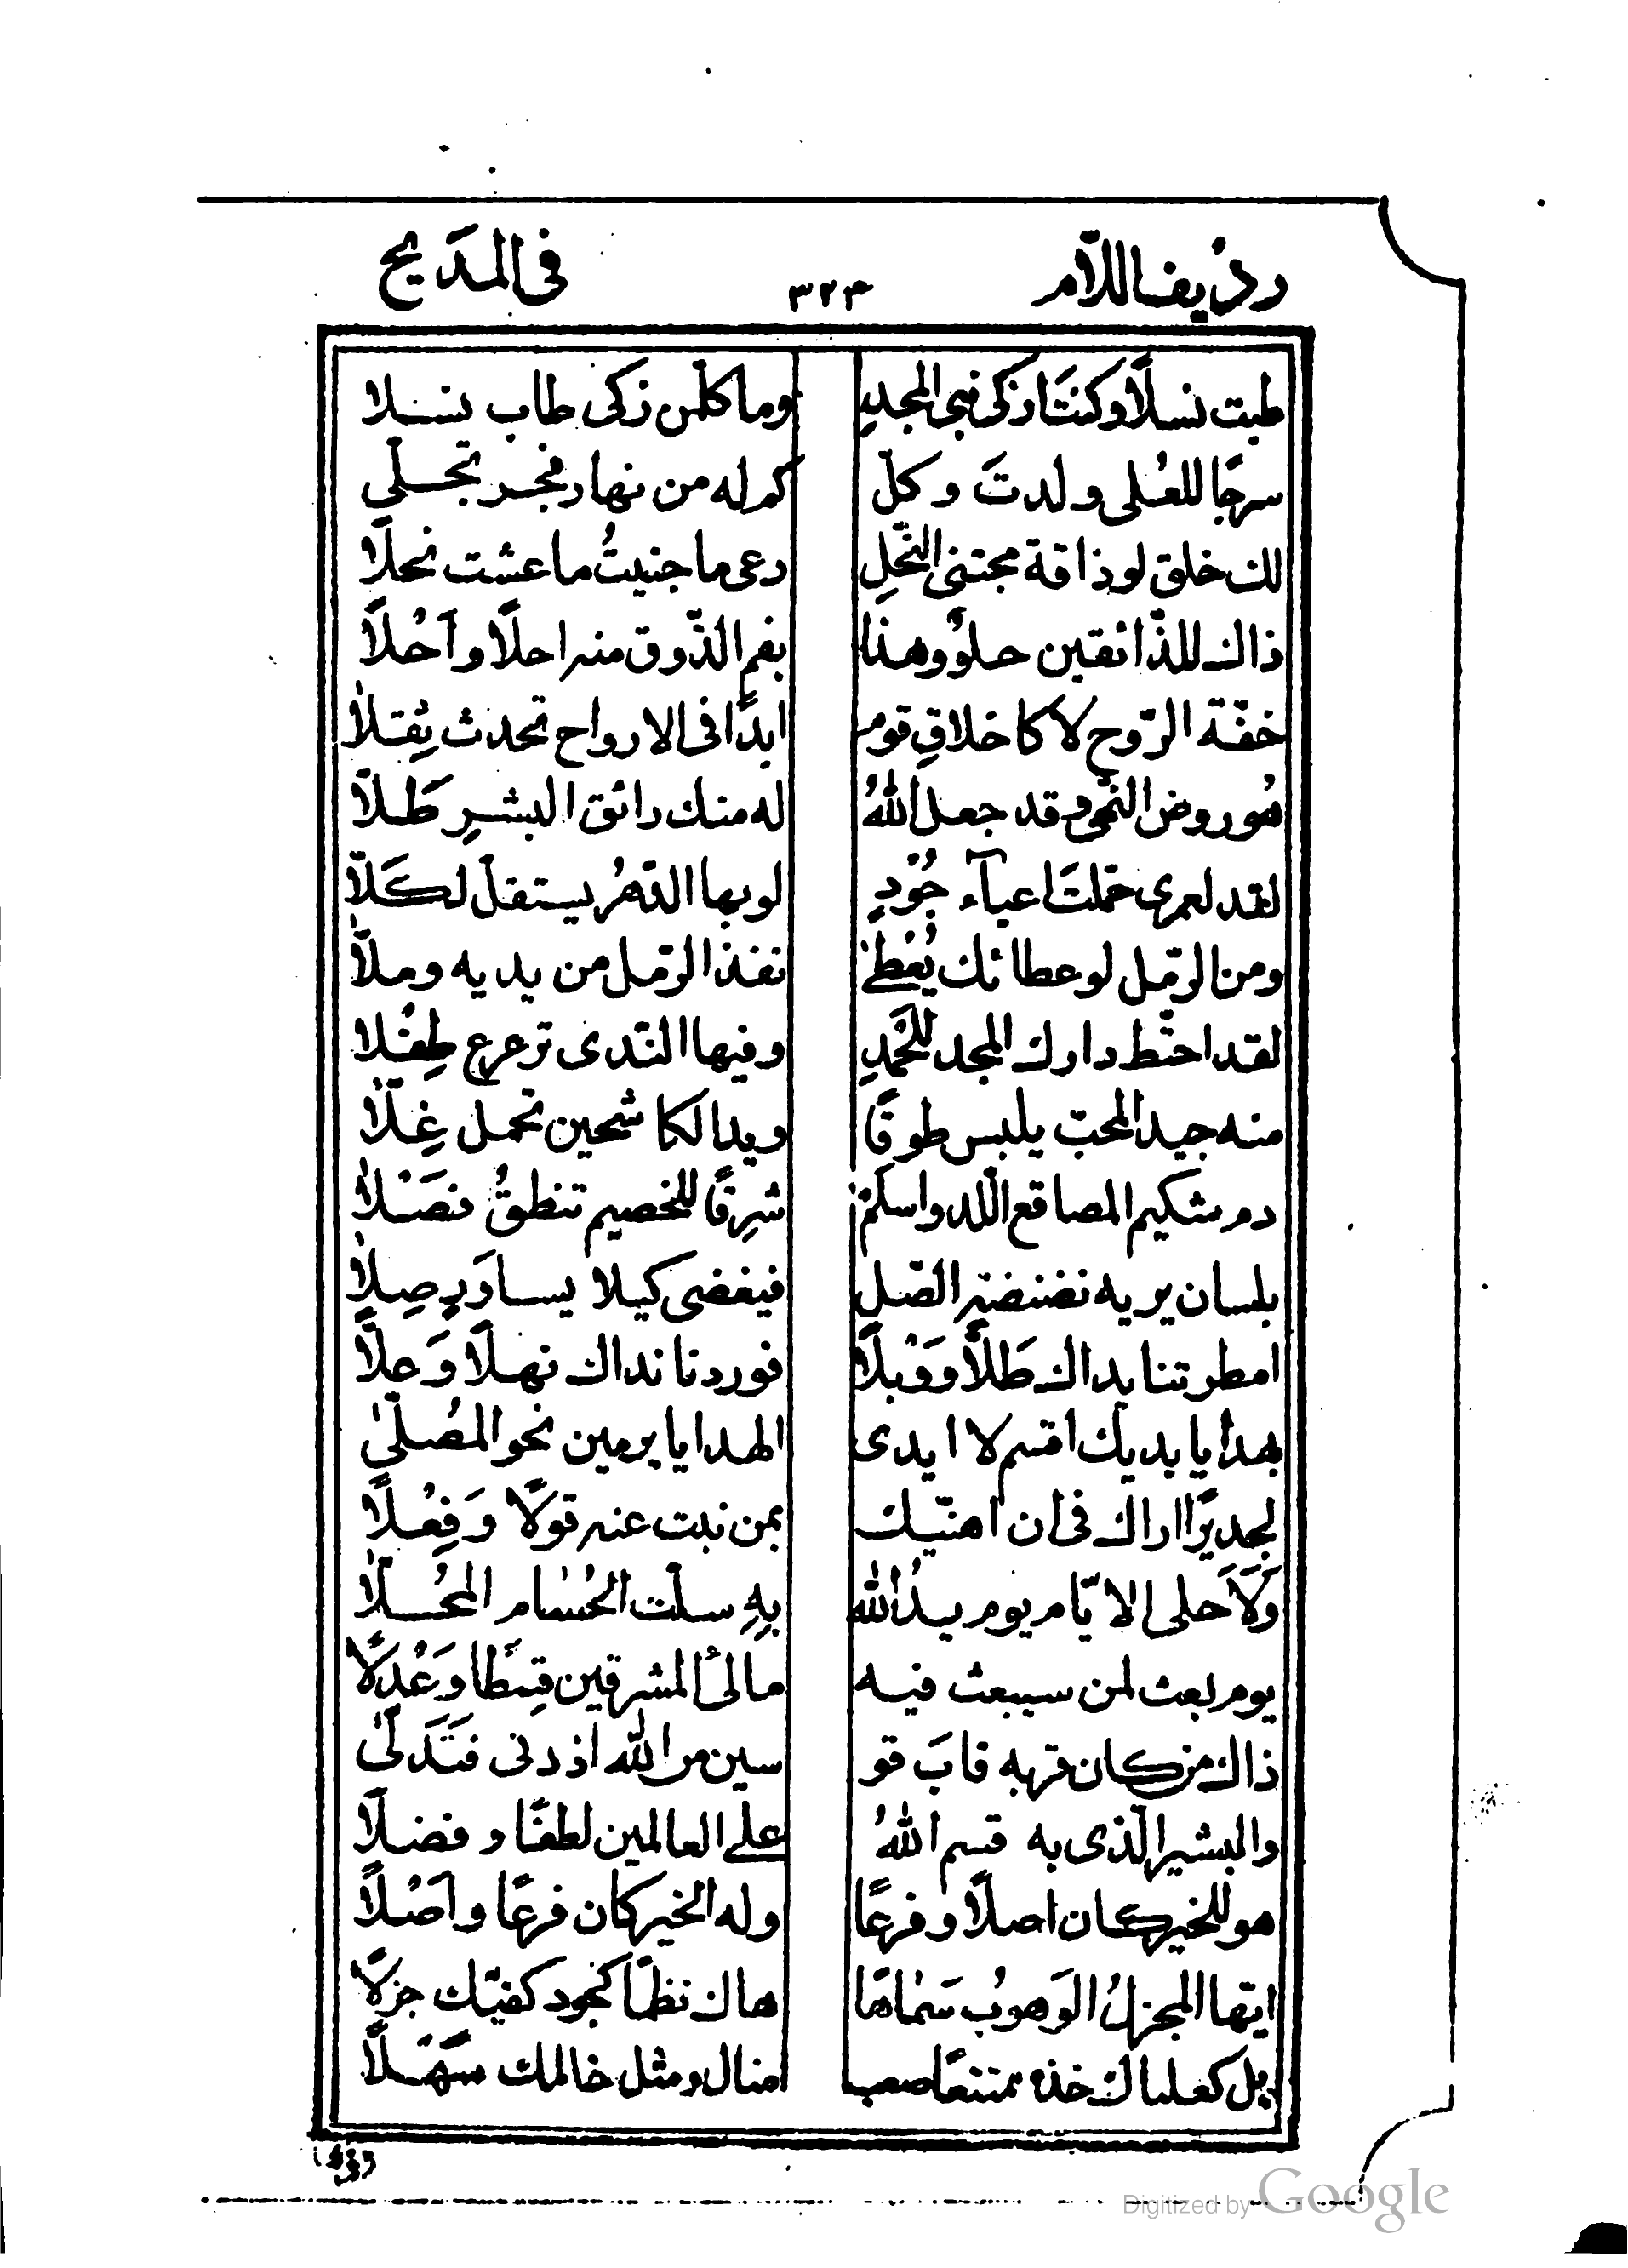 رديف اللّام ٣٢٣ فى المَديح
طبت نسلًا وكنتَ ازكى نبى المجدِ وما كلّ من زكى طاب نسلا
سرجًا للعُلى ولدتَ وكلّ كم له من نهار فخر تجلّى
لك خلق لو ذاقة مجتنى النّحلِ دعى ما جنيتُ ما عشت نحلًا
ذاك للذّائقين حلوٌ وهذا بفم الذّوق منه احلًا وَاَحْلًا
خفّة الرّوح لا كاخلاقِ قوم ابدًا فى الارواح تحدث ثِقلًا
هُو روض النّهى وقد جعل اللهُ له منك رائق البشرِ طَلّا
لقد لعمرى حمّلتَ اعبآء جُوْدٍ لو بها الدّهرُ يستقلّ لكَلّا
ومن الرّمل لو عطائك يُعْطىٰ نفذ الرّمل من يديه وملّا
لقد اختطّ دارك المجد للحَمدِ وفيها النّدى ترعرع طِفْلا
منه جيد المحبّ يلبس طوقًا ويد الكاشحين تحمل غِلّا
دم شكيم المصاقع اللّد واسلمْ شرِقًا للخصيم تنطقُ نصَْلًا
بلسان يريه نضنضة الصّل فيغضى كيلا يساوَر صِلا
امطرتنا يداك طَلّا ووَبْلًا فوردنا نداك نهلًا وَعلّا
بهدايا يديك اقسم لا ايدى الهدايا يرمين نحو المُصلّىٰ
لجديرًا اراك فى ان اهنّيك بمن نبت عنه قولًا وَفِعْلًا
وَلَاَحلى الايّام يوم يدُ الله بِهِ سلّت الحُسام المُحَلّا
يوم بعث لمن سيبعث فيه مالئ المشرقين قِسْطًا وَعَدْلًا
ذاك من كان قربه قابَ قو سين من الله اذ دنى فتَدَلّىٰ
والبشير الّذى به قسم اللهُ على العالمين لطفًا وفضلًا
هو للخير كان اصلًا وفرعًا وله الخير كان فرعًا وَاَصْلًا
ايّها المجزلُ الوَهوبُ سَماحًا هاك نظمًا كجود كفيّك جزلًا
بل كعلياك خذه ممتنعًا صعب امنال ومثل خالك سَهْلًا
Digitized by Google